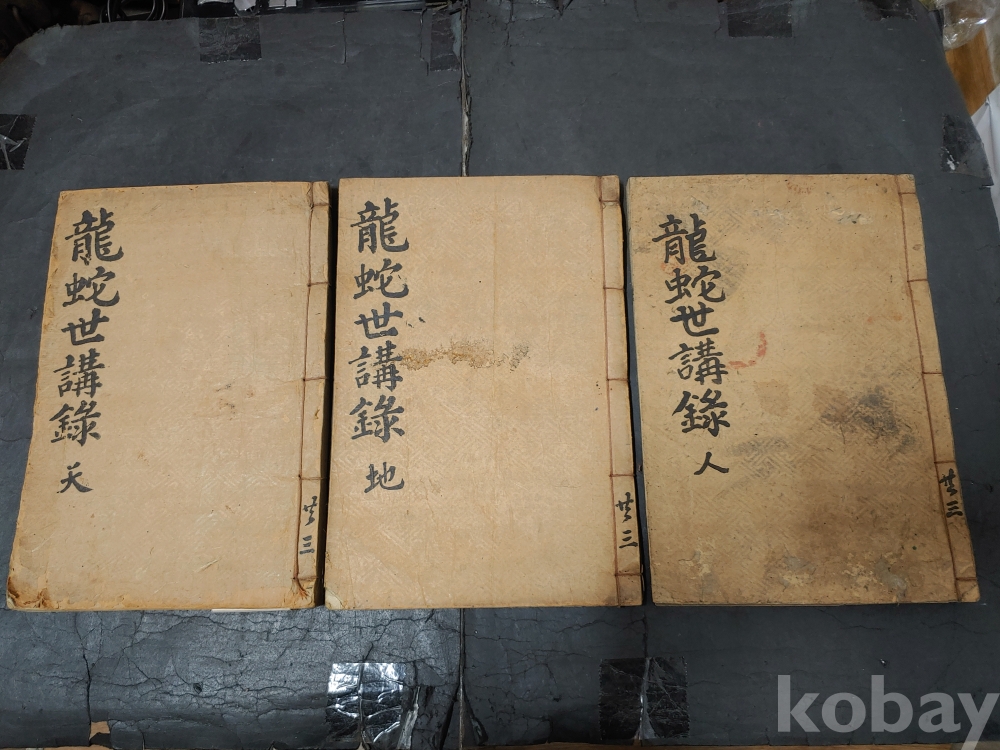 龍蛇世講錄 天
共三
龍蛇世講錄 地
共三
龍蛇世講錄 人
共三
kobay